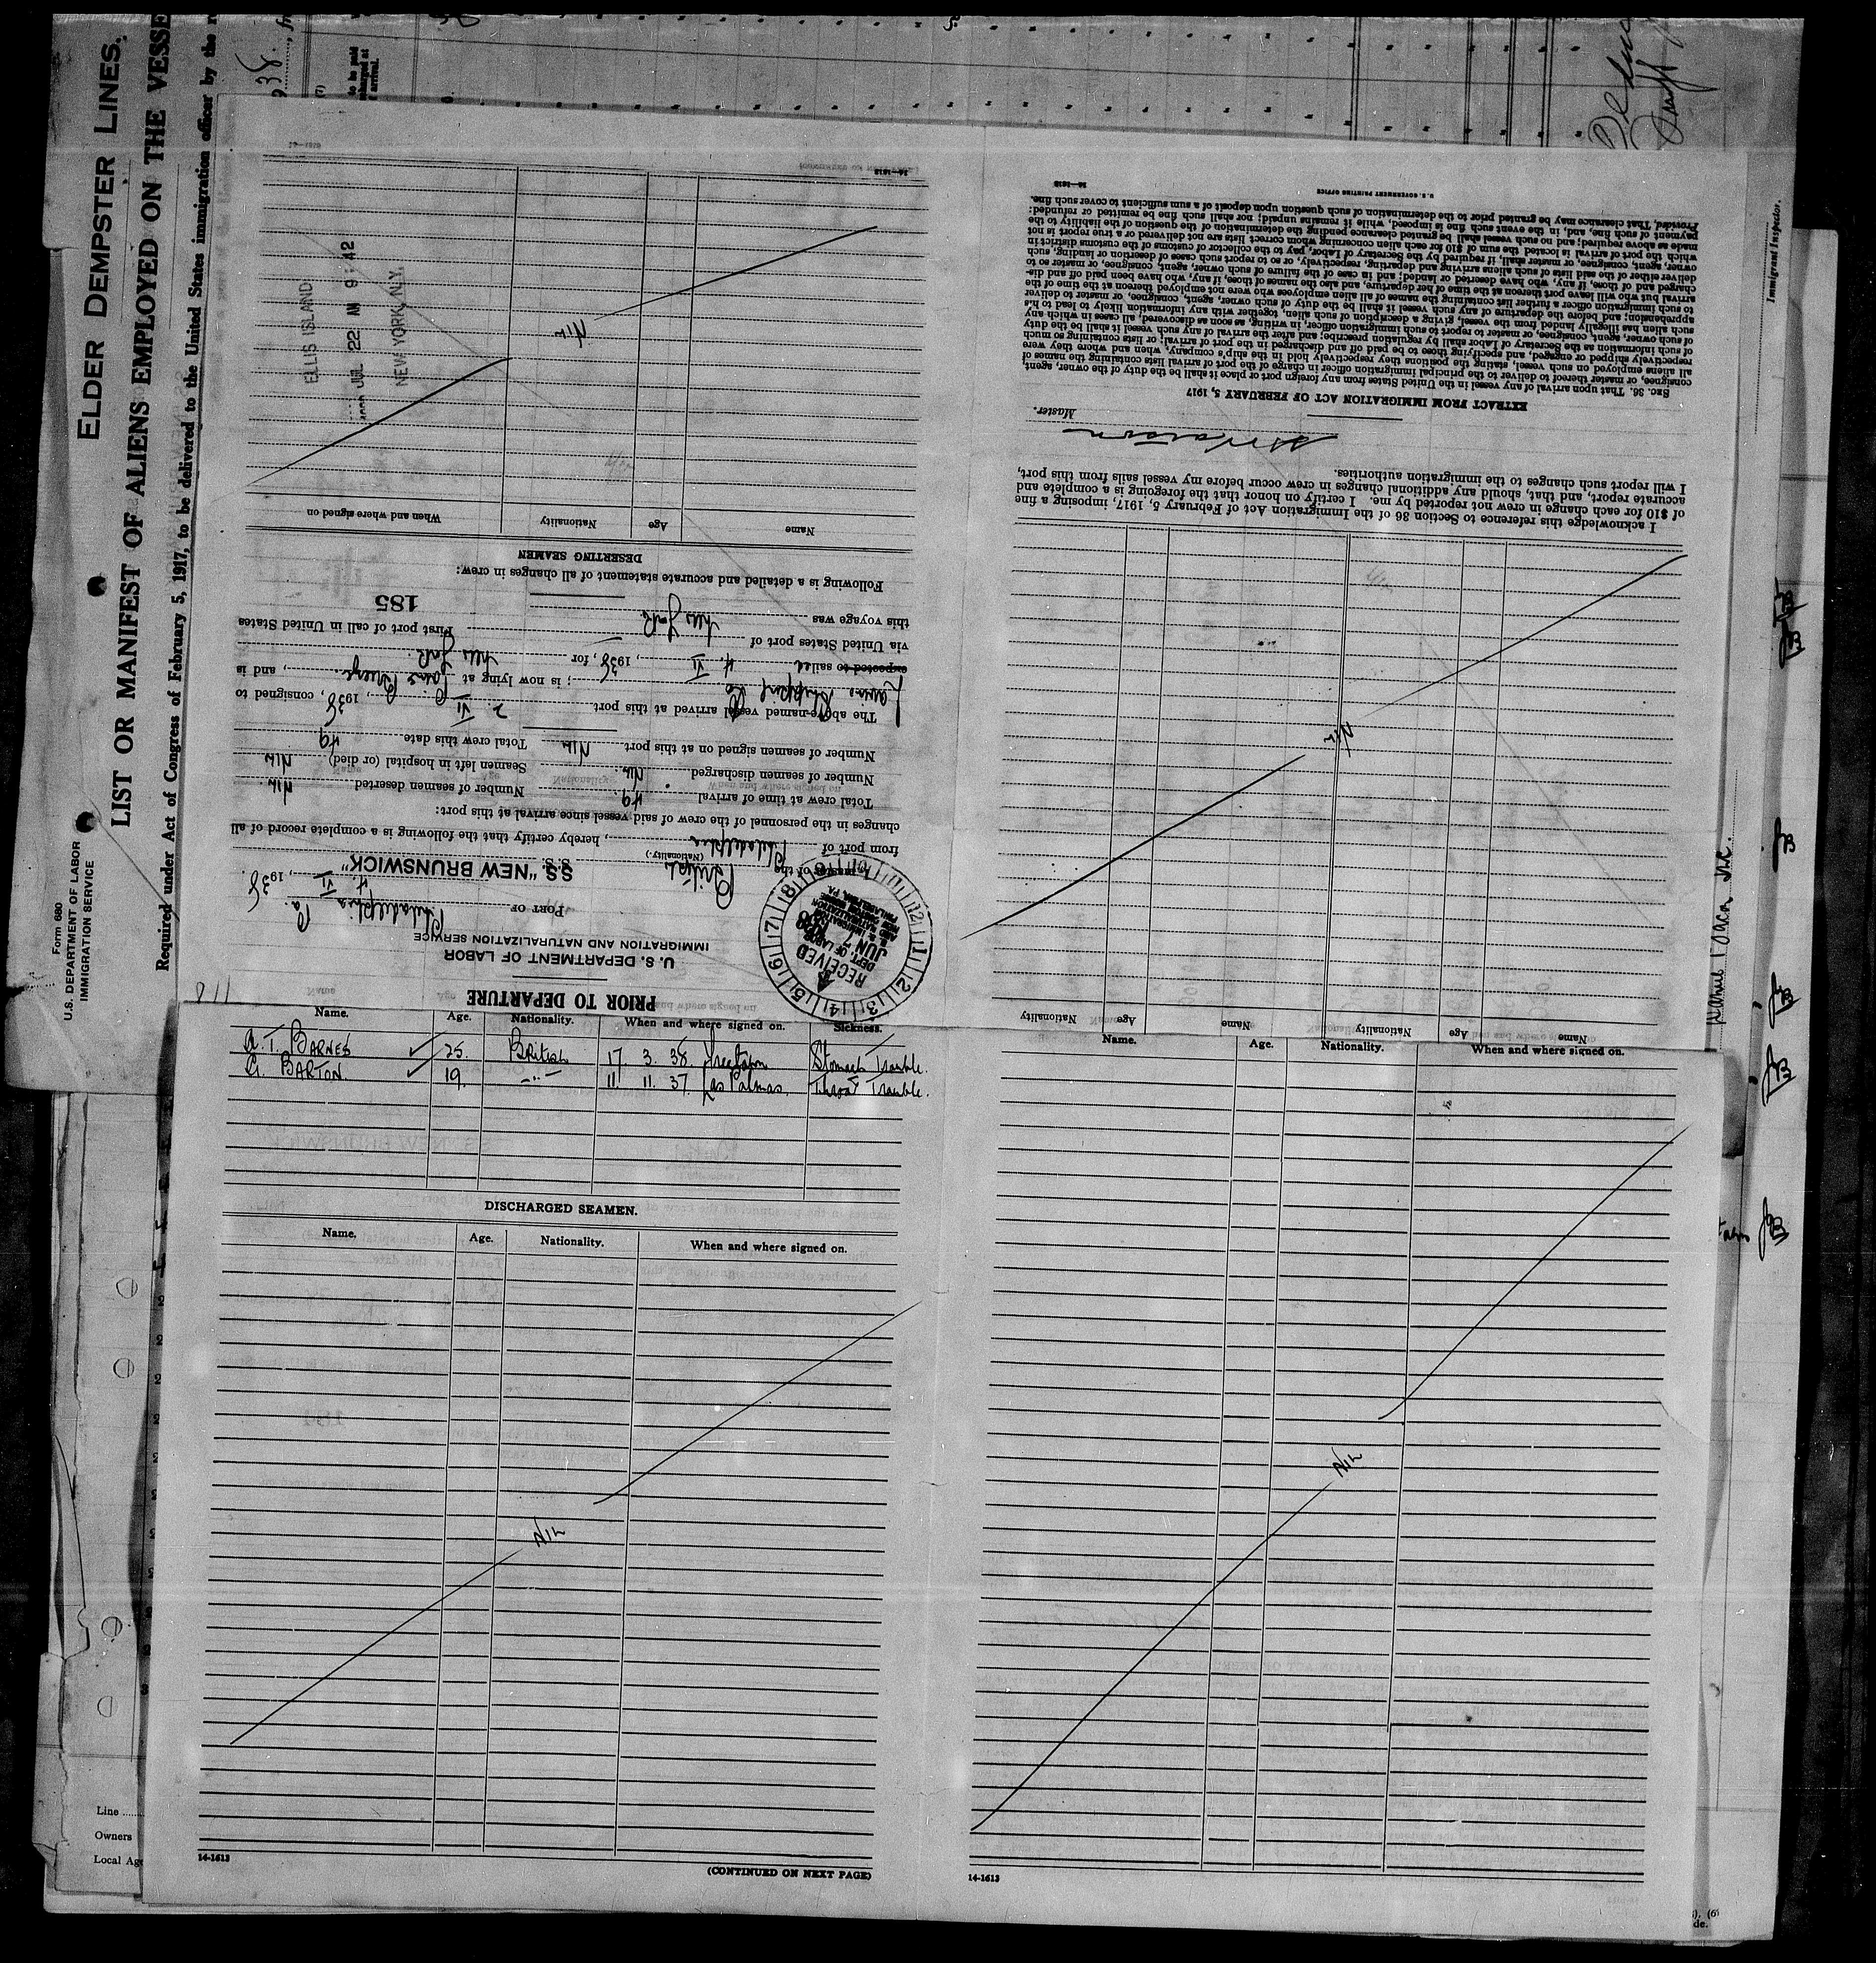 ELDER DEMPSTER LINES.
LIST OR MANIFEST OF ALIENS EMPLOYED ON THE VESSE
Required under Act of Congress of February 5, 1917, to be delivered to the United States immigration officer by the r
Form 680
U.S. DEPARTMENT OF LABOR
IMMIGRATION SERVICE
PRIOR TO DEPARTURE
U. S. DEPARTMENT OF LABOR
IMMIGRATION AND NATURALIZATION SERVICE
PORT OF Philadelphia Pa
4 VI, 1938.
master of the British S.S. "NEW BRUNSWICK"
(Nationality.)
from port of Philadelphia, hereby certify that the following is a complete record of all
changes in the personnel of the crew of said vessel since arrival at this port:
Total crew at time of arrival 49. Number of seamen deserted NIL.
Number of seamen discharged NIL. Seamen left in hospital (or died) NIL
Number of seamen signed on at this port NIL Total crew this date 49
The above-named vessel arrived at this port 2. VI, 1938, consigned to
Shipping Co; is now lying at, and is
expected to sailed 4. VI, 1938, for New York.
via United States port of
this voyage was New York First port of call in United States
185
Following is a detailed and accurate statement of all changes in crew:
DESERTING SEAMEN
Name Age Nationality When and where signed on
Nil
ELLIS ISLAND
JUL 22 AM 9:42
NEW YORK, N.Y.
14—1613
RECEIVED
DEPT. OF LABOR
JUN 7 1938
PHILADELPHIA, PA.
Name Age Nationality Name Age Nationality
Nil
I acknowledge this reference to Section 36 of the Immigration Act of February 5, 1917, imposing a fine
of $10 for each change in crew not reported by me. I certify on honor that the foregoing is a complete and
accurate report, and that, should any additional changes in crew occur before my vessel sails from this port,
I will report such changes to the immigration authorities.
Master.
EXTRACT FROM IMMIGRATION ACT OF FEBRUARY 5, 1917
SEC. 36. That upon arrival of any vessel in the United States from any foreign port or place it shall be the duty of the owner, agent,
consignee, or master thereof to deliver to the principal immigration officer in charge of the port of arrival lists containing the names of
all aliens employed on such vessel, stating the positions they respectively hold in the ship's company, when and where they were
respectively shipped or engaged, and specifying those to be paid off and discharged in the port of arrival; or lists containing so much
of such information as the Secretary of Labor shall by regulation prescribe; and after the arrival of any such vessel it shall be the duty
of such owner, agent, consignee, or master to report to such immigration officer, in writing, as soon as discovered, all cases in which any
such alien has illegally landed from the vessel, giving a description of such alien, together with any information likely to lead to his
apprehension; and before the departure of any such vessel it shall be the duty of such owner, agent, consignee, or master to deliver
to such immigration officer a further list containing the names of all alien employees who were not employed thereon at the time of the
arrival but who will leave port thereon at the time of her departure, and also the names of those, if any, who have been paid off and dis-
charged and of those, if any, who have deserted or landed; and in case of the failure of such owner, agent, consignee, or master so to
deliver either of the said lists of such aliens arriving and departing, respectively, or so to report such cases of desertion or landing, such
owner, agent, consignee, or master shall, if required by the Secretary of Labor, pay to the collector of customs of the customs district in
which the port of arrival is located the sum of $10 for each alien concerning whom correct lists are not delivered or a true report is not
made as above required; and no such vessel shall be granted clearance pending the determination of the question of the liability to the
payment of such fine, and, in the event such fine is imposed, while it remains unpaid; nor shall such fine be remitted or refunded:
Provided, That clearance may be granted prior to the determination of such question upon deposit of a sum sufficient to cover such fine.
U. S. GOVERNMENT PRINTING OFFICE 14—1613
Immigrant Inspector.
Name. Age. Nationality. When and where signed on. Sickness.
A. T. BARNES 25. British 17. 3. 38. Freetown Stomach Trouble.
G. BARTON. 19. -"- 11. 11. 37. Las Palmas. Throat Trouble.
DISCHARGED SEAMEN.
Name. Age. Nationality. When and where signed on.
NIL
14-1613
(CONTINUED ON NEXT PAGE)
Name. Age. Nationality. When and where signed on.
NIL
14-1613
Line
Owners
Local Ag